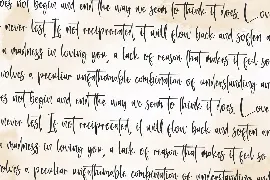 oes not begin and end the way we seem to think it does. L ove
never lost. If not reciprocated, it will flow back and soften an
a madness in loving you, a lack of reason that makes it feel so
volves a peculiar unfathomable combination of understanding an
es not begin and end the way we seem to think it does. L ove
never lost. If not reciprocated, it will flow back and soften an
a madness in loving you, a lack of reason that makes it feel so
volves a peculiar unfathomable combination of understanding an